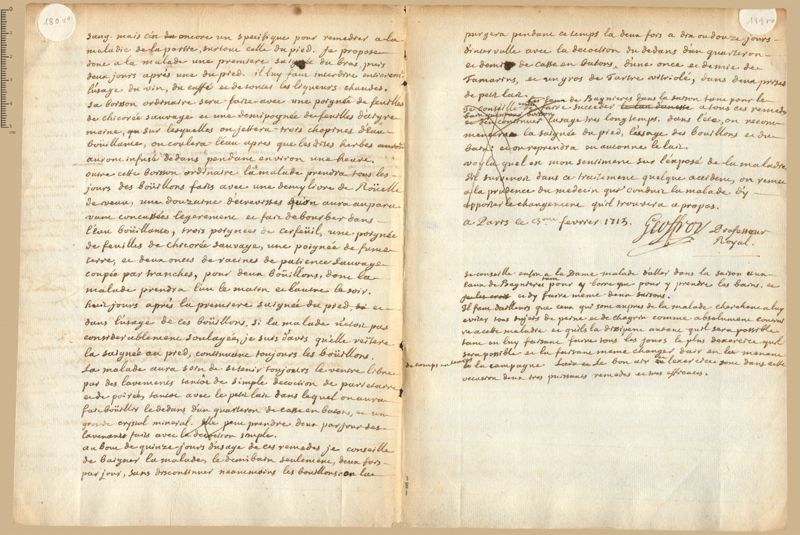 180 vº
sang. mais c'en est encore un specifique pour remedier a la
maladie de la partie, surtout celle du pied. Je propose
donc a la malade une premiere saignée du bras, puis
deux jours après une du pied. il luy faut interdire entierem.t
l'usage du vin, du caffé et de toutes les liqueurs chaudes.
sa boisson ordinaire sera faite avec une poignée de feuilles
de chicorée sauvage et une demi poignée de feuilles d'aigre
moine, sur lesquelles on jettera trois chopines d'eau
bouillante, on coulera l'eau apres que les dites herbes
auront infusé dedans pendant environ une heure.
outre cette boisson ordinaire la malade prendra tous les
jours des boüillons faits avec une demy livre de Roüelle
de veau, une douzaine d'ecrevisses qu'on aura auparа
vant concassées legerement et fait debourber dans
l'eau boüillante, trois poignées de cerfeüil, une poignée
de feuilles de chicorée sauvage, une poignée de fume
terre, et deux onces de racines de patience sauvage
coupée par tranches, pour deux boüillons, dont la
malade prendra l'un le matin et l'autre le soir.
huit jours après la premiere saignée du pied, et
dans l'usage de ces boüillons, si la malade n'etoit pas
considerablement soulagée, je suis d'avis qu'elle reïtere
la saignée au pied, continuant toujours les boüillons.
La malade aura soin de se tenir toujours le ventre libre
par des lavements tantot de simple decoction de parietaire
et de poirée, tantot avec le petit lait dans lequel on aura
fait boüillir le dedans d'un quarteron de casse en batons, et un
gros de crystal mineral. Elle peut prendre deux par jour des
lavements faits avec la decoction simple.
au bout de quinze jours d'usage de ces remedes je conseille
de baigner la malade, le demi bain seulement, deux fois
par jour, sans discontinuer neanmoins les boüillons. on la
purgera pendant ce temps la deux fois a dix ou douze jours
d'intervalle avec la decoction du dedans d'un quarteron
et demi de casse en batons, d'une once et demie de
Tamarins, et un gros de Tartre vitriolé, dans deux prises
de petit lait.
a tous ces remedes
l'usage tres longtemps. dans l'eté, on recom
mencera la saignée du pied, l'usage des bouillons et du
bain; et on reprendra en automne le lait.
voyla quel est mon sentiment sur l'exposé de la maladie
s'il survenoit dans ce traitement quelque accident, on remet
a la prudence du medecin qui conduit la malade d'y
apporter le changement qu'il trouvera a propos.
a Paris le 3eme fevrier 1715.
Geoffroy Professeur
Royal.
Je conseille enfin a la Dame malade d'aller dans la saison aux
Eaux de Bagnieres tant pour y boire que pour y prendre les bains, et
d'y faire meme deux saisons.
Il faut d'ailleurs que ceux qui sont autour de la malade cherchent a luy
eviter tous sujets de peine et de chagrin comme absolument contrai
re a cette maladie et qu'ils la dissipent autant qu'il sera possible
tant en luy faisant faire tous les jours le plus d'exercice qu'il
sera possible et la faisant meme changer d'air en la menant
de temps en temps a la campagne. Le bon air et l'exercice sont dans cette
occasion deux tres puissants remedes et tres efficaces.